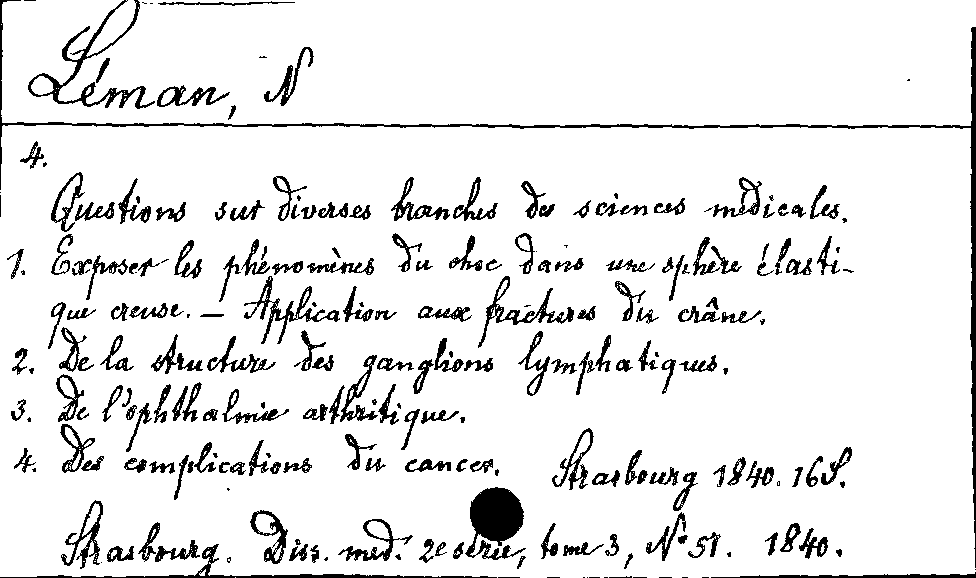 Léman, N
4.
Questions sur diverses branches des sciences médicales.
1. Exposer les phénomènes du choc dans une sphère élasti-
que creuse. — Application aux fractures du crâne.
2. De la structure des ganglions lymphatiques.
3. De l'ophthalmie arthritique.
4. Des complications du cancer. Strasbourg 1840. 16 S.
Strasbourg. Diss. med. 2e série, tome 3, No 51. 1840.